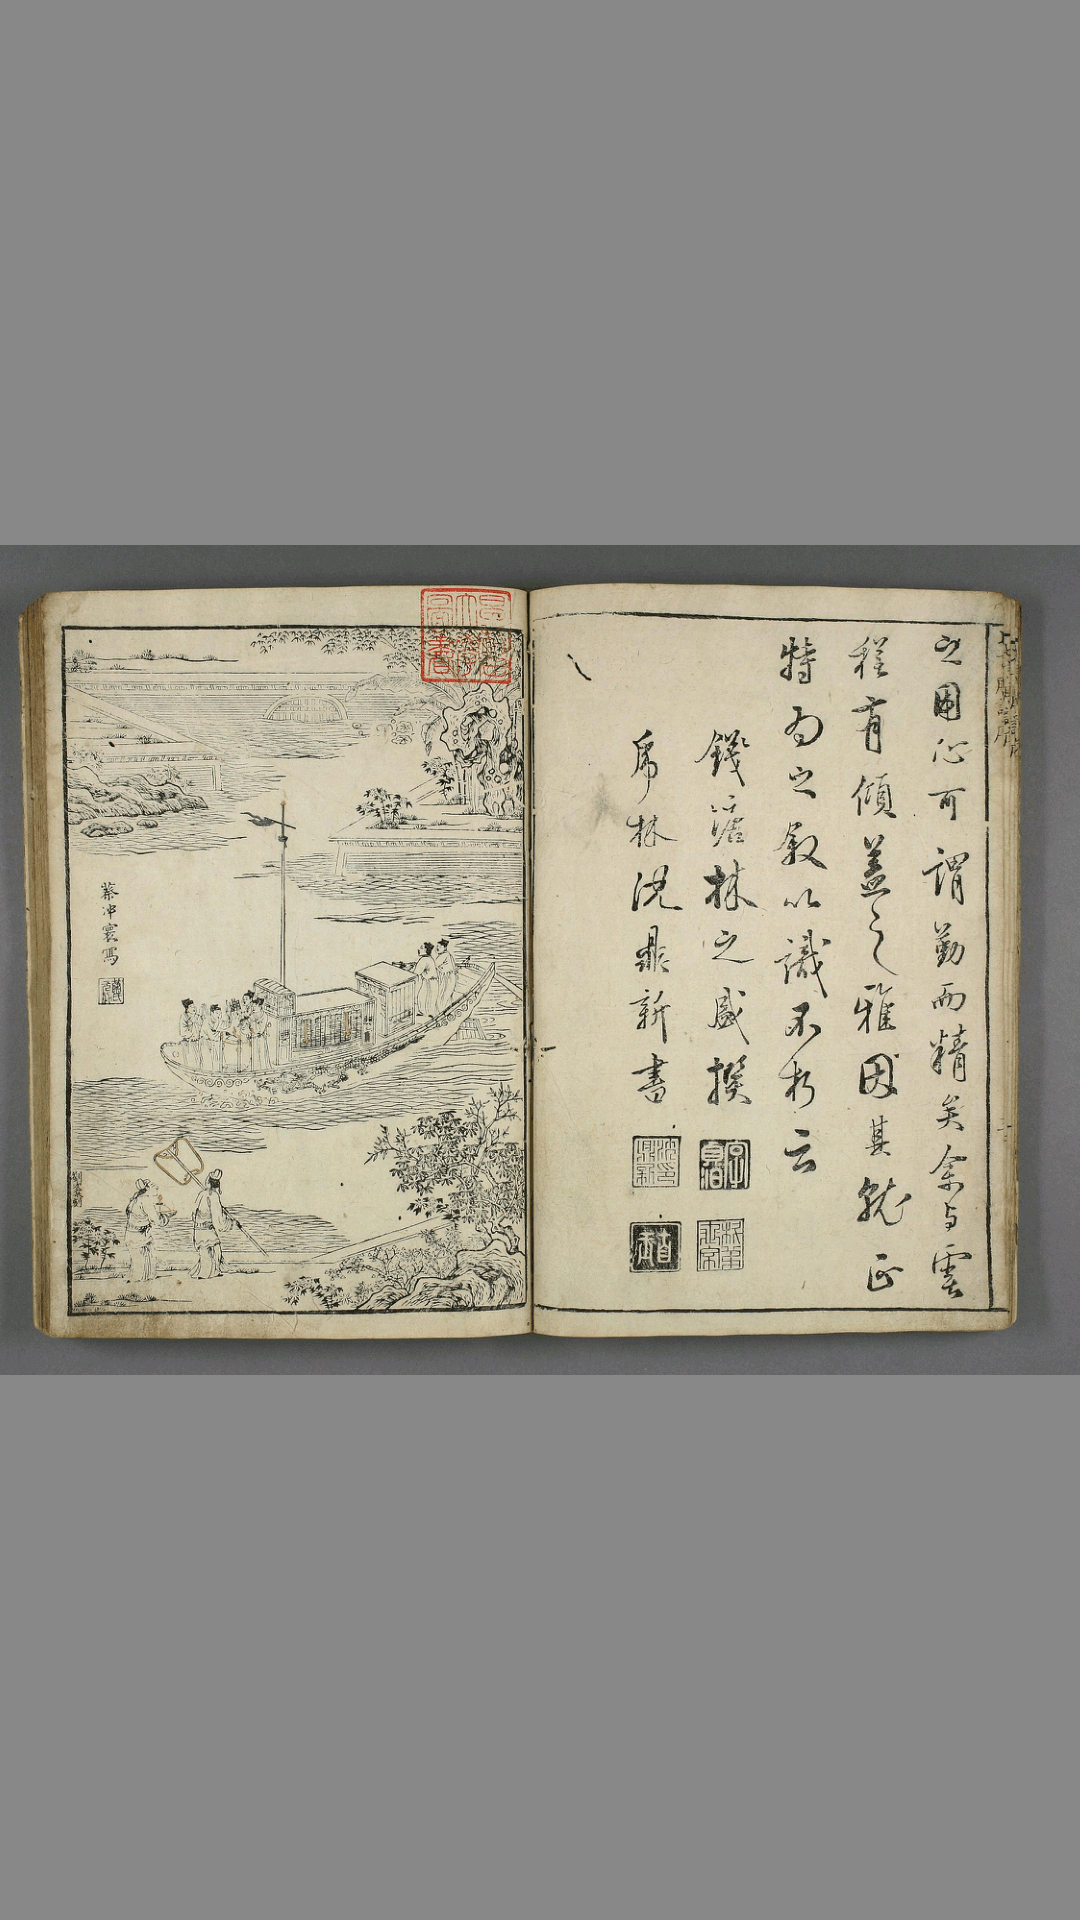 之用心可謂勤而精矣余与雲
程有傾蓋之雅因其就正
特為之敘以識不朽云
錢塘林之盛撰
虎林沈鼎新書
蔡冲寰寫